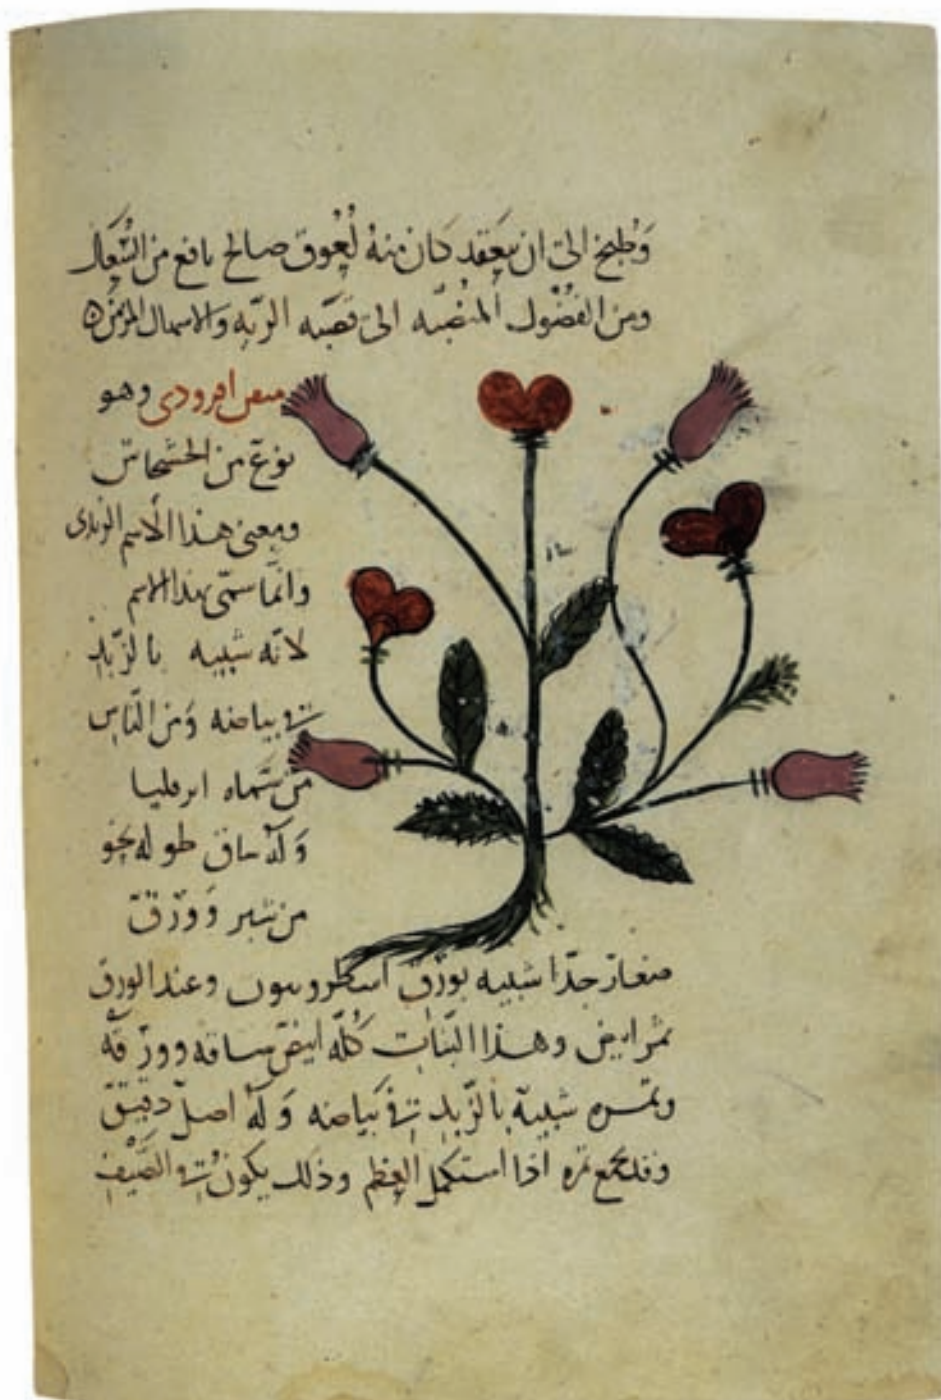 وَطُبخ الى ان ينعَقد كَان مِنهُ لُعُوق صالح نافع من السُّعَال
ومن الفُضُول المُنصَبّه الى قصَبَه الريّه وَالاسهال المزمن ه
ميقن افرودى وهو
نوع من الخشخاش
ومعنى هذا الاسم الزبدى
وانّما سمّى بهذا الاسم
لانّه شبيه بالزّبد
فى بياضه وَمن النّاس
من سَمّاه ارقليا
وَلهُ ساق طوله نحو
من شبر وَوَرَق
صغار جدّا شبيه بورَق اسطروثيون وعند الورق
ثمر ابيض وهذا النّبات كُلّه ابيض ساقه وورَقه
وثمره شبيه بالزّبد فى بَياضه وَلهُ اصل دقيق
وقد يجمع ثمره اذا استكمل العِظم وذلك يكون فى الصَّيف